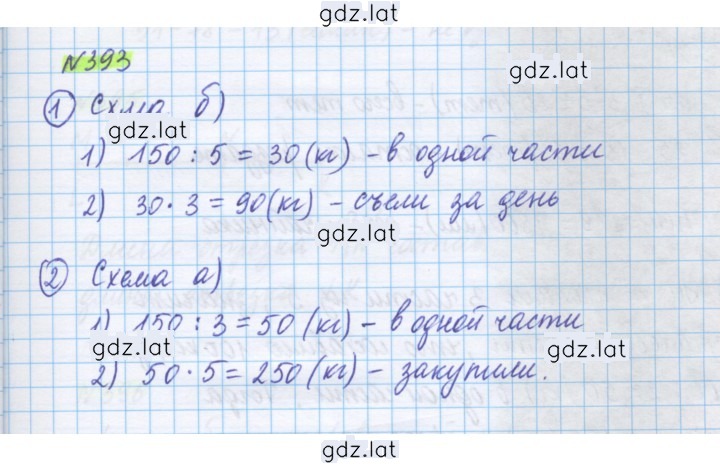 gdz.lat
№393
gdz.lat
① Схема б)
gdz.lat
1) 150 : 5 = 30 (кг) - в одной части
2) 30 · 3 = 90 (кг) - съели за день
gdz.lat
② Схема а)
1) 150 : 3 = 50 (кг) - в одной части
gdz.lat
gdz.lat
2) 50 · 5 = 250 (кг) - закупили.
gdz.lat